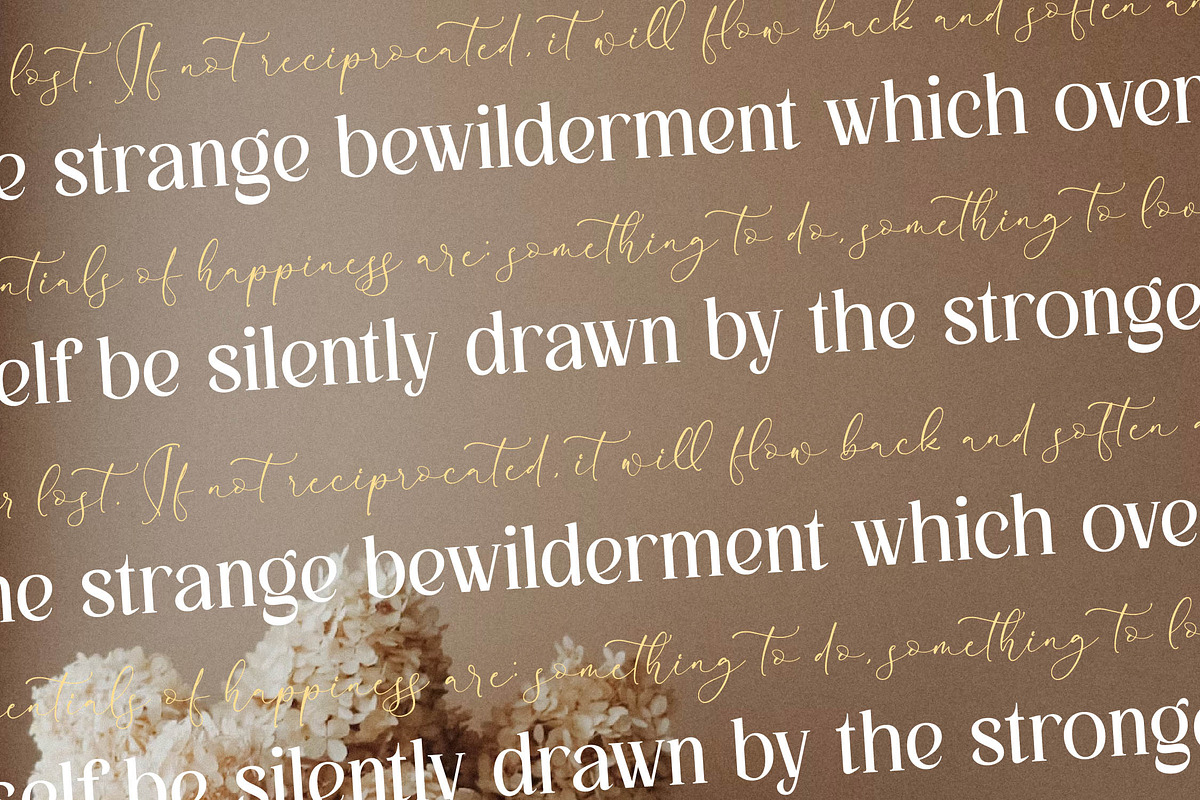 lost. If not reciprocated, it will flow back and soften
strange bewilderment which over
of happiness are: something to do, something to
elf be silently drawn by the stronge
lost. If not reciprocated, it will flow back and soften
he strange bewilderment which ove
entials of happiness are: something to do, something to
self be silently drawn by the strong